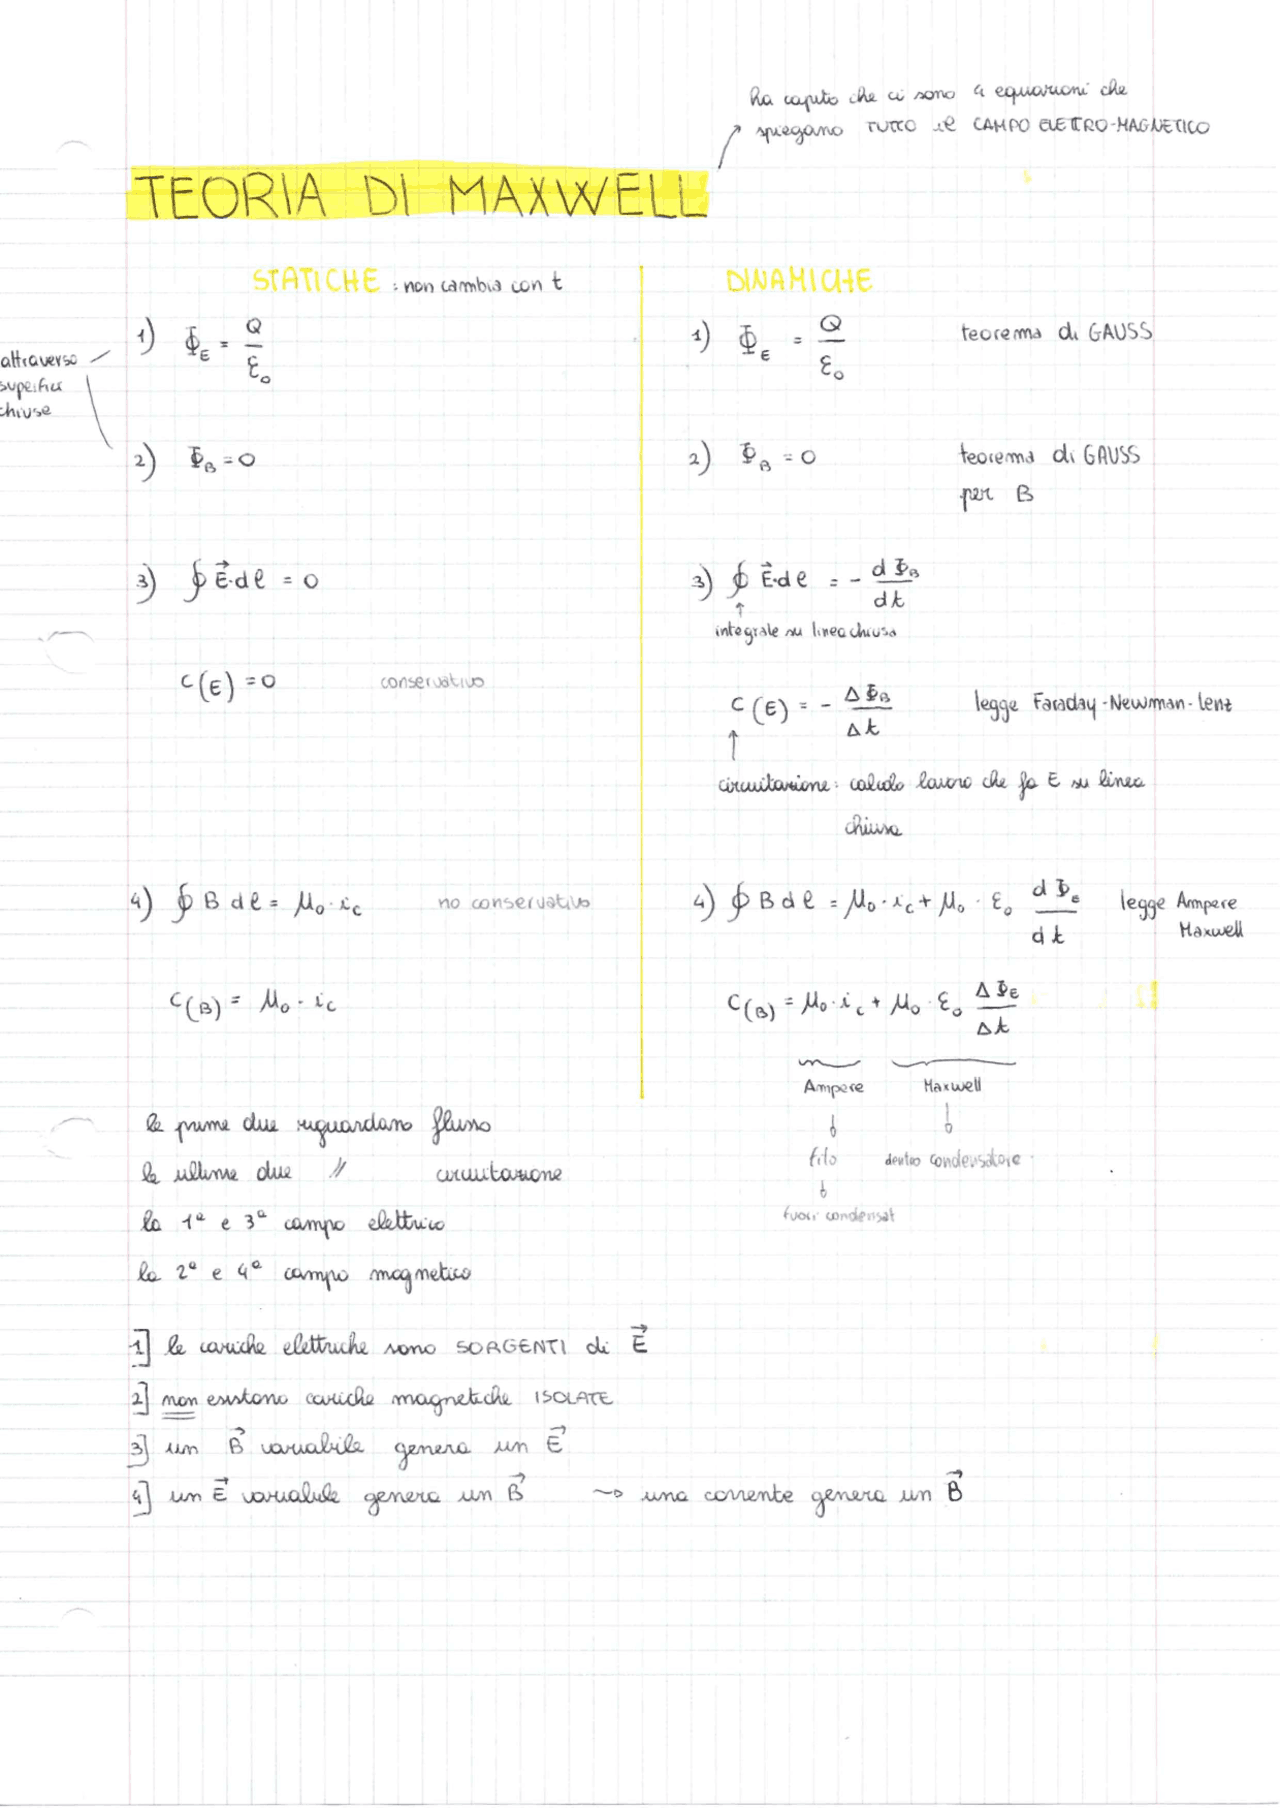 ha capito che ci sono 4 equazioni che
spiegano TUTTO il CAMPO ELETTRO-MAGNETICO
TEORIA DI MAXWELL
STATICHE : non cambia con t
1) Φ_E = Q/ε₀
attraverso
superfici
chiuse
2) Φ_B = 0
3) ∮ E⃗·dl = 0
C(E) = 0 conservativo
4) ∮ B dl = μ₀ · i_c no conservativo
C(B) = μ₀ · i_c
DINAMICHE
1) Φ_E = Q/ε₀ teorema di GAUSS
2) Φ_B = 0 teorema di GAUSS
per B
3) ∮ E⃗·dl = - dΦ_B/dt
↑
integrale su linea chiusa
C(E) = - ΔΦ_B/Δt legge Faraday-Newman-Lenz
↑
circuitazione: calcolo lavoro che fa E su linea
chiusa
4) ∮ B dl = μ₀ · i_c + μ₀ · ε₀ dΦ_e/dt legge Ampere
Maxwell
C(B) = μ₀ · i_c + μ₀ · ε₀ ΔΦ_E/Δt
Ampere Maxwell
filo dentro condensatore
fuori condensat
le prime due riguardano flusso
le ultime due // circuitazione
la 1ª e 3ª campo elettrico
la 2ª e 4ª campo magnetico
1] le cariche elettriche sono SORGENTI di E⃗
2] non esistono cariche magnetiche ISOLATE
3] un B⃗ variabile genera un E⃗
4] un E⃗ variabile genera un B⃗ → una corrente genera un B⃗